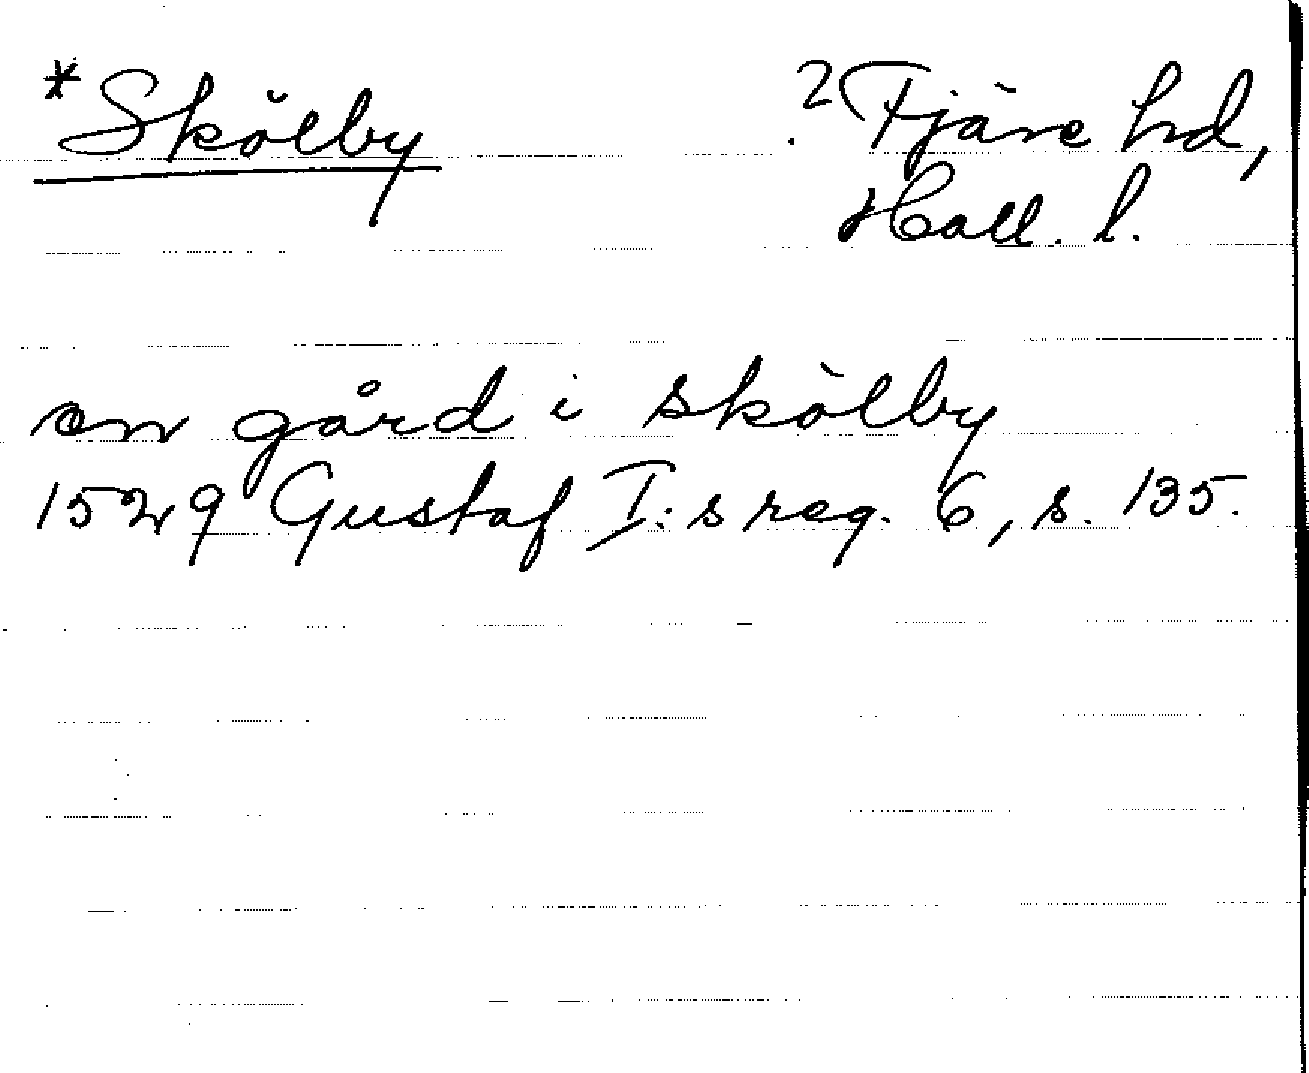 * Skölby
? Fjäre hd,
Hall. l.
en gård i skölby
1529 Gustaf I:s reg. 6, s. 135.